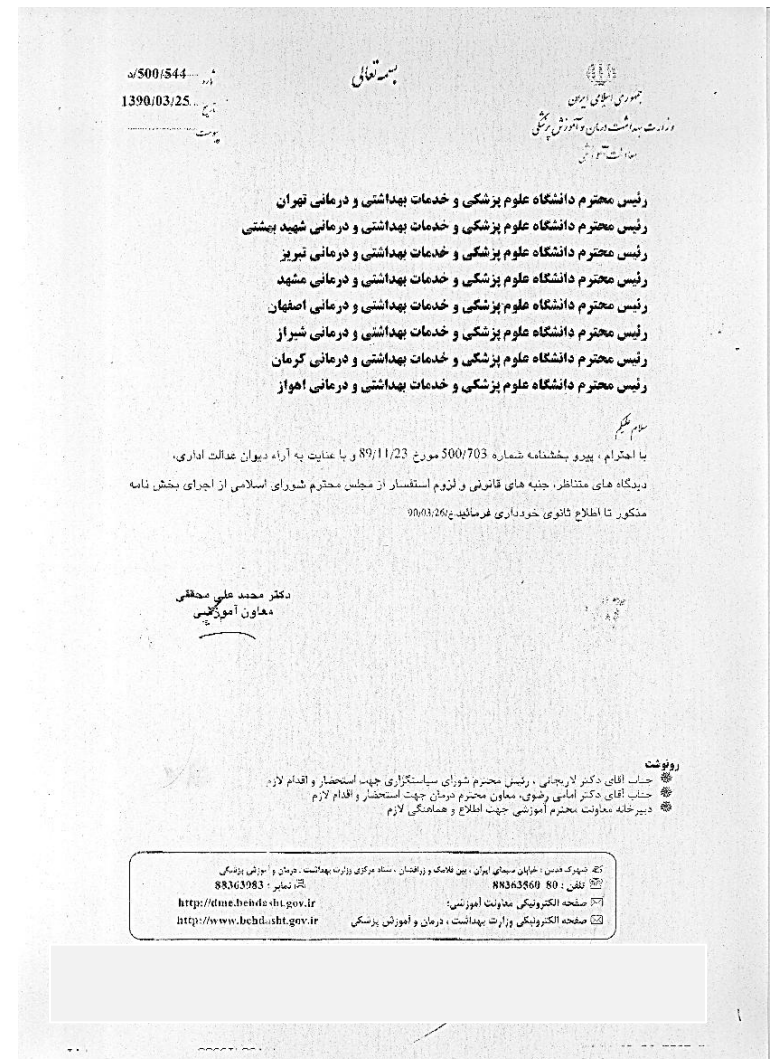 بسمه تعالی
جمهوری اسلامی ایران
وزارت بهداشت درمان و آموزش پزشکی
معاونت آموزشی
شماره 544/500/د
تاریخ 1390/03/25
پیوست
رئیس محترم دانشگاه علوم پزشکی و خدمات بهداشتی و درمانی تهران
رئیس محترم دانشگاه علوم پزشکی و خدمات بهداشتی و درمانی شهید بهشتی
رئیس محترم دانشگاه علوم پزشکی و خدمات بهداشتی و درمانی تبریز
رئیس محترم دانشگاه علوم پزشکی و خدمات بهداشتی و درمانی مشهد
رئیس محترم دانشگاه علوم پزشکی و خدمات بهداشتی و درمانی اصفهان
رئیس محترم دانشگاه علوم پزشکی و خدمات بهداشتی و درمانی شیراز
رئیس محترم دانشگاه علوم پزشکی و خدمات بهداشتی و درمانی کرمان
رئیس محترم دانشگاه علوم پزشکی و خدمات بهداشتی و درمانی اهواز
سلام علیکم
با احترام ، پیرو بخشنامه شماره 500/703 مورخ 89/11/23 و با عنایت به آراء دیوان عدالت اداری،
دیدگاه های متناظر، جنبه های قانونی و لزوم استفسار از مجلس محترم شورای اسلامی از اجرای بخش نامه
مذکور تا اطلاع ثانوی خودداری فرمائید.ع/90/03/26
دکتر محمد علی محققی
معاون آموزشی
رونوشت
جناب آقای دکتر لاریجانی ، رئیس محترم شورای سیاستگزاری جهت استحضار و اقدام لازم
جناب آقای دکتر امامی رضوی، معاون محترم درمان جهت استحضار و اقدام لازم
دبیرخانه معاونت محترم آموزشی جهت اطلاع و هماهنگی لازم
شهرک قدس ؛ خیابان سیمای ایران ، بین فلامک و زرافشان ، ستاد مرکزی وزارت بهداشت ، درمان و آموزش پزشکی
تلفن : 80 88363560 نمابر : 88363983
صفحه الکترونیکی معاونت آموزشی: http://dme.behdasht.gov.ir
صفحه الکترونیکی وزارت بهداشت ، درمان و آموزش پزشکی http://www.behdasht.gov.ir
۱